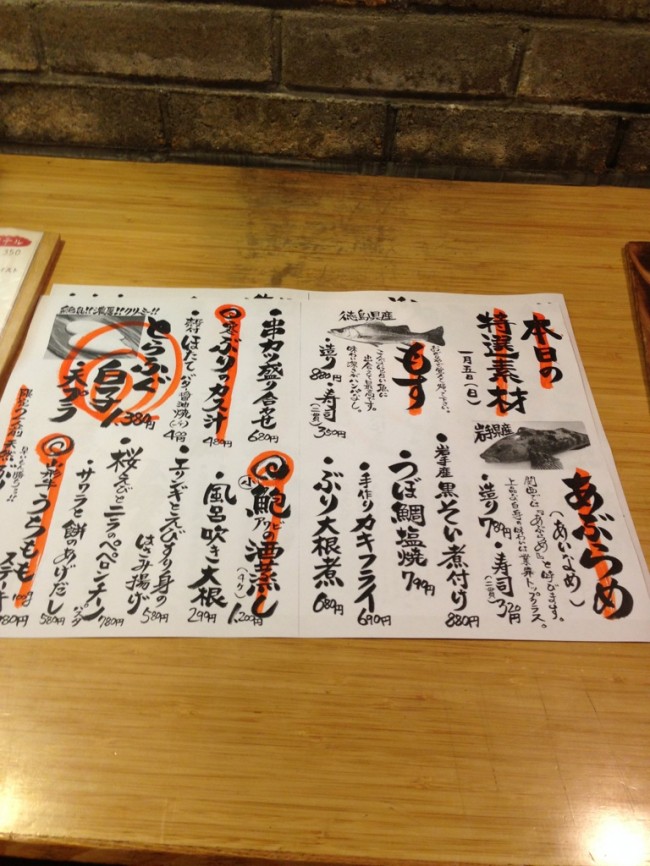 本日の
特選素材
一月五日(日)
岩手県産
あぶらめ
(あいなめ)
関西では"あぶらめ"と呼びます。
・造り780円
・寿司(二貫)320円
徳島県産
すもす
・造り880円
・寿司(二貫)350円
・岩手産黒そい煮付け880円
うつぼ鯛塩焼799円
・手作りカキフライ690円
・ぶり大根煮680円
・串カツ盛り合せ680円
寒ぶりのカス汁480円
・殻付ほたてバター醤油焼
濃厚!!クリーミー!!
とらふぐ
白子
天ぷら
1,380円
小鮑アワビの酒蒸し1,200円
・風呂吹き大根299円
・エリンギとえびすり身の
はさみ揚げ580円
・桜えびとニラのペペロンチーノ780円
・サワラと餅のあげだし580円
山形牛うちもも
ステーキ
100g
350